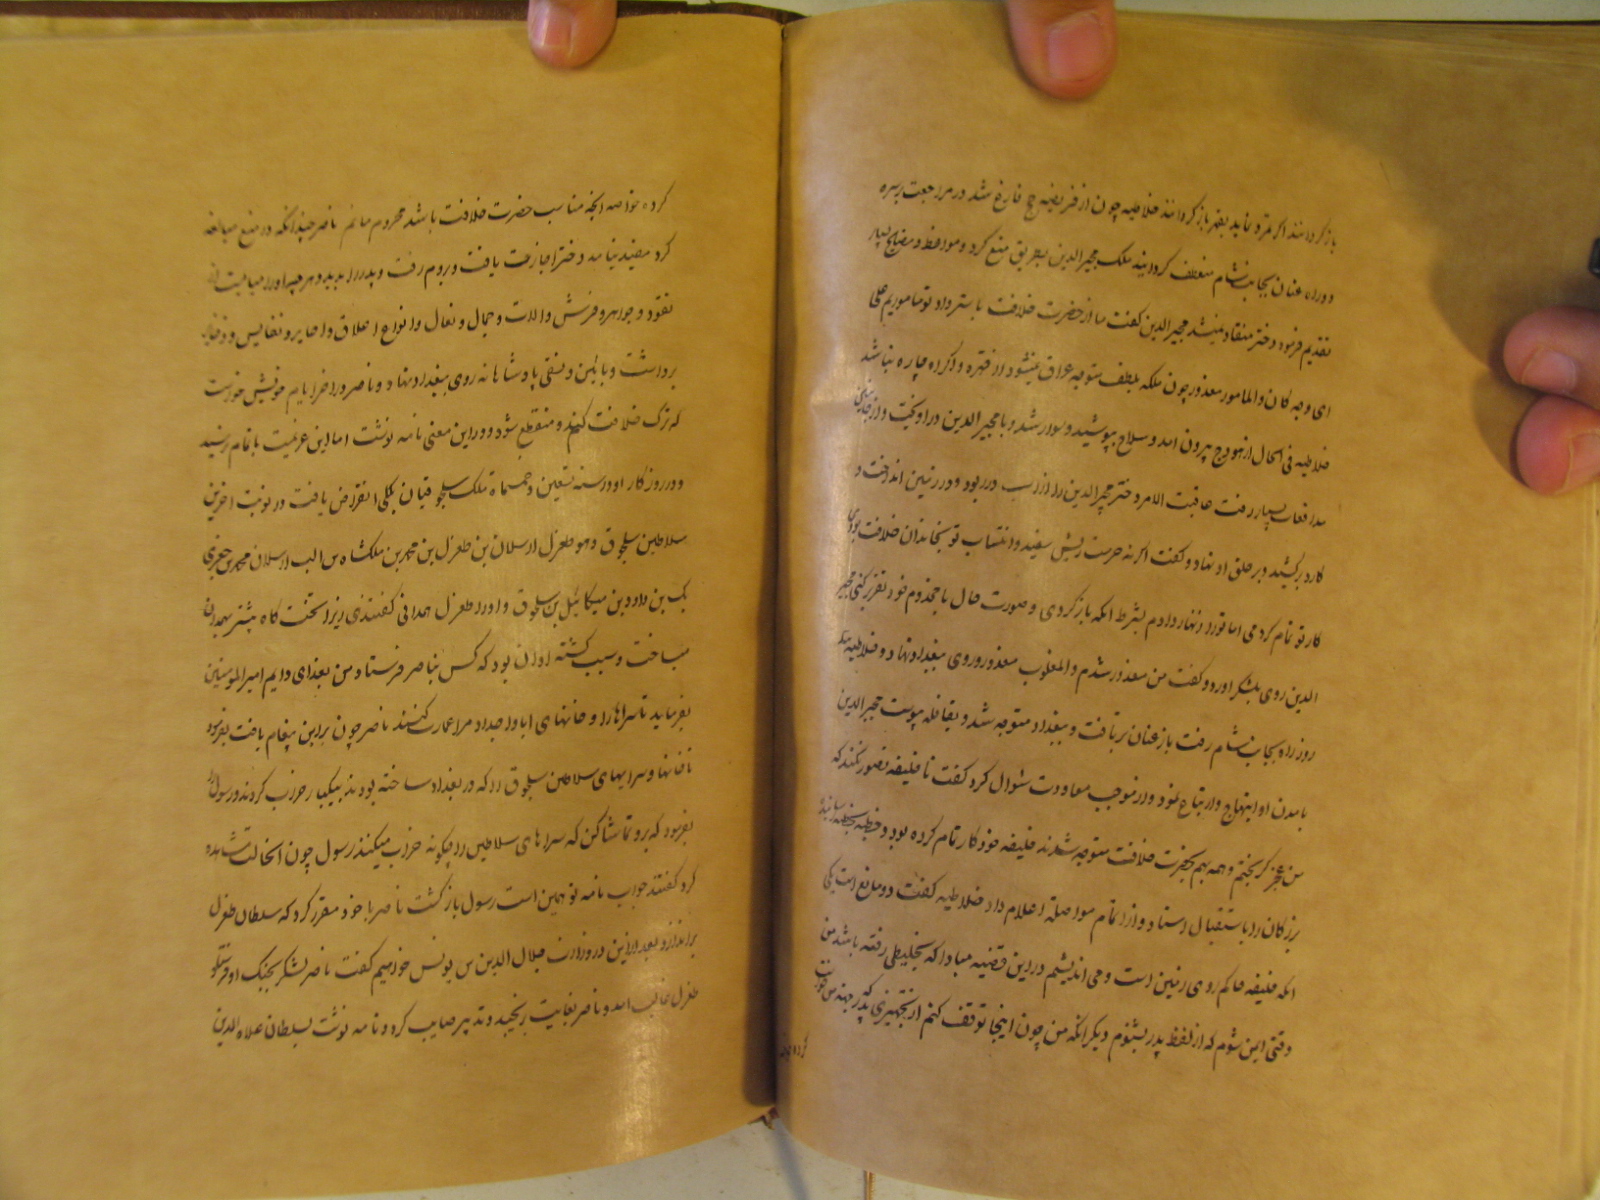 باز کردانند اکر تمرد نماید بقهر باز کردانند خلاطیه چون از فریضه حج فارغ شد در مراجعت بر سره
دو راه عنان بجانب شام منعطف کردانید ملک مجیر الدین بطریق منع کرد و مواعظ و نصایح بسیار
تقدیم فرمود دختر منقاد نمیشد مجیر الدین کفت ما از حضرت خلافت باسترداد تو ماموریم علی
ای وجه کان والمامور معذور چون ملکه بلطف متوجه عراق نمیشود از قهره و اکراه چاره نباشد
خلاطیه فی الحال از هودج بیرون امد و سلاح بپوشید و سوار شد و با مجیر الدین در اویخت و از جانبین
مدافعات بسیار رفت عاقبت الامر دختر مجیر الدین را از اسب در ربود و در زمین انداخت و
کارد برکشید و بر حلق او نهاد و کفت اکر نه حرمت ریش سفید و انتساب تو بخاندان خلافت بودی
کار تو تمام کردمی اما ترا زنهار دادم بشرط انکه باز کردی و صورت حال با مخدوم خود تقریر کنی مجیر
الدین روی بلشکر اورد و کفت من معذور شدم والمغلوب معذور و روی ببغداد نهاد و خلاطیه یک
روز راه بجانب شام رفت باز عنان برتافت و ببغداد متوجه شد و بقافله پیوست مجیر الدین
بامدن او ابتهاج و ارتیاح نمود و از موجب معاودت سوال کرد کفت تا خلیفه تصور نکند که
من بکریختم و همه بهم بحضرت خلافت متوجه شدند خلیفه خود کار تمام کرده بود و خطبه
بزرکان را باستقبال فرستاد و از اتمام مواصلة اعلام داد خلاطیه کفت دو مانع است یکی
انکه خلیفه حاکم روی زمین است و می اندیشم در این قضیه مبادا که تخلیطی رفته باشد من
وقتی ایمن شوم که از لفظ پدر بشنوم دیکر انکه من چون اینجا توقف کنم از تجهیزی که پدر جهت من
کرده خواهد
کرده خواهد انچه مناسب حضرت خلافت باشد محروم مانم ناصر چندانکه در منع مبالغه
کرد مفید نیامد دختر اجازت یافت و بروم رفت و پدر را بدید و هر چه او را میبایست از
نقود و جواهر و فرش و الات و جمال و بغال و انواع اعلاق و اخایر و نفایس و ذخایر
برداشت و بائین و نسقی پادشاهانه روی ببغداد نهاد و ناصر در اخر ایام خویش خواست
که ترک خلافت کند و منقطع شود و در این معنی نامه نوشت اما این عزیمت باتمام نرسید
و در روزکار او در سنه تسعین و خمسماه ملک سلجوقیان بکلی انقراض یافت در نوبت اخرین
سلاطین سلجوق و هو طغرل ارسلان بن طغرل بن محمد بن ملکشاه بن الب ارسلان محمد بن جغری
بک بن داود بن میکائیل بن سلجوق و او را طغرل همدانی کفتندی زیرا تخت کاه بیشتر بهمدان
میساخت و سبب کشته او ان بود که کس بناصر فرستاد و من بغداد می ایم امیر المومنین
بفرماید تا سراها را و خانهای ابا و اجداد مرا عمارت کنند ناصر چون براین پیغام یافت بفرمود
تا خانها و سرایهای سلاطین سلجوق را که در بغداد ساخته بودند بیکبار خراب کردند و رسول را
بفرمود که برو تماشا کن که سراهای سلاطین را چکونه خراب میکنند رسول چون انحالت مشاهده
کرد کفتند جواب نامه تو همین است رسول باز کشت ناصر با خود مقرر کرد که سلطان طغرل
براندازد و بعد از این در وزارت جلال الدین بن یونس خواهیم کفت ناصر لشکر بجنک او فرستاد
طغرل غالب امد و ناصر بغایت رنجید و تدبیر صایب کرد و نامه نوشت بسلطان علاء الدین